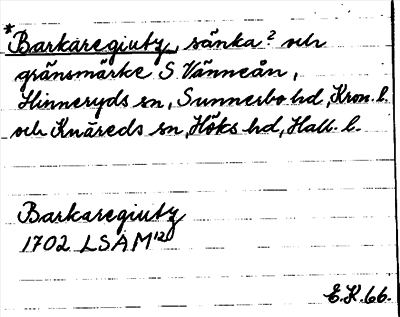 *Barkaregiuty, sänka? och
gränsmärke S. Vänneån,
Hinneryds sn, Sunnerbo hd, Kron. l.
och Knäreds sn, Höks hd, Hall. l.
Barkaregiuty
1702 LSAM¹²
E.K.66.